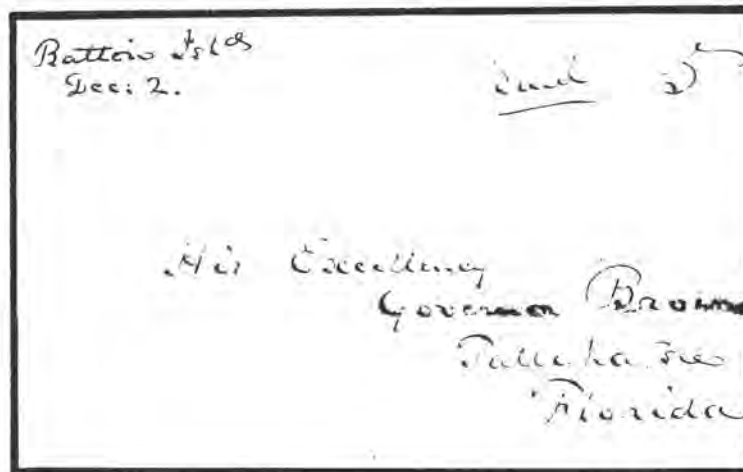 Rattoin Isl^ds
Dec: 2.
paid 5
His Excellency
Governor Brown
Tallahassee
Florida